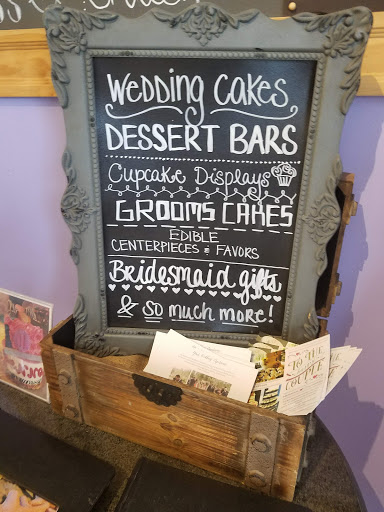 Wedding Cakes
DESSERT BARS
Cupcake Displays
GROOMS CAKES
EDIBLE
CENTERPIECES & FAVORS
Bridesmaid gifts
& so much more!
TO THE